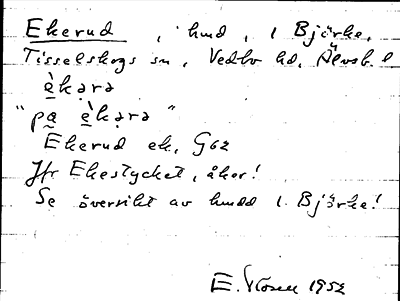 Ekerud, hmd, i Björke,
Tisselskogs sn, Vedbo hd, Älvsb. l
ὲkərə
"pa ὲkərə"
Ekerud ek. G62
Jfr Ekestycket, åker!
Se översikt av hmdd i Björke!
E. 1952